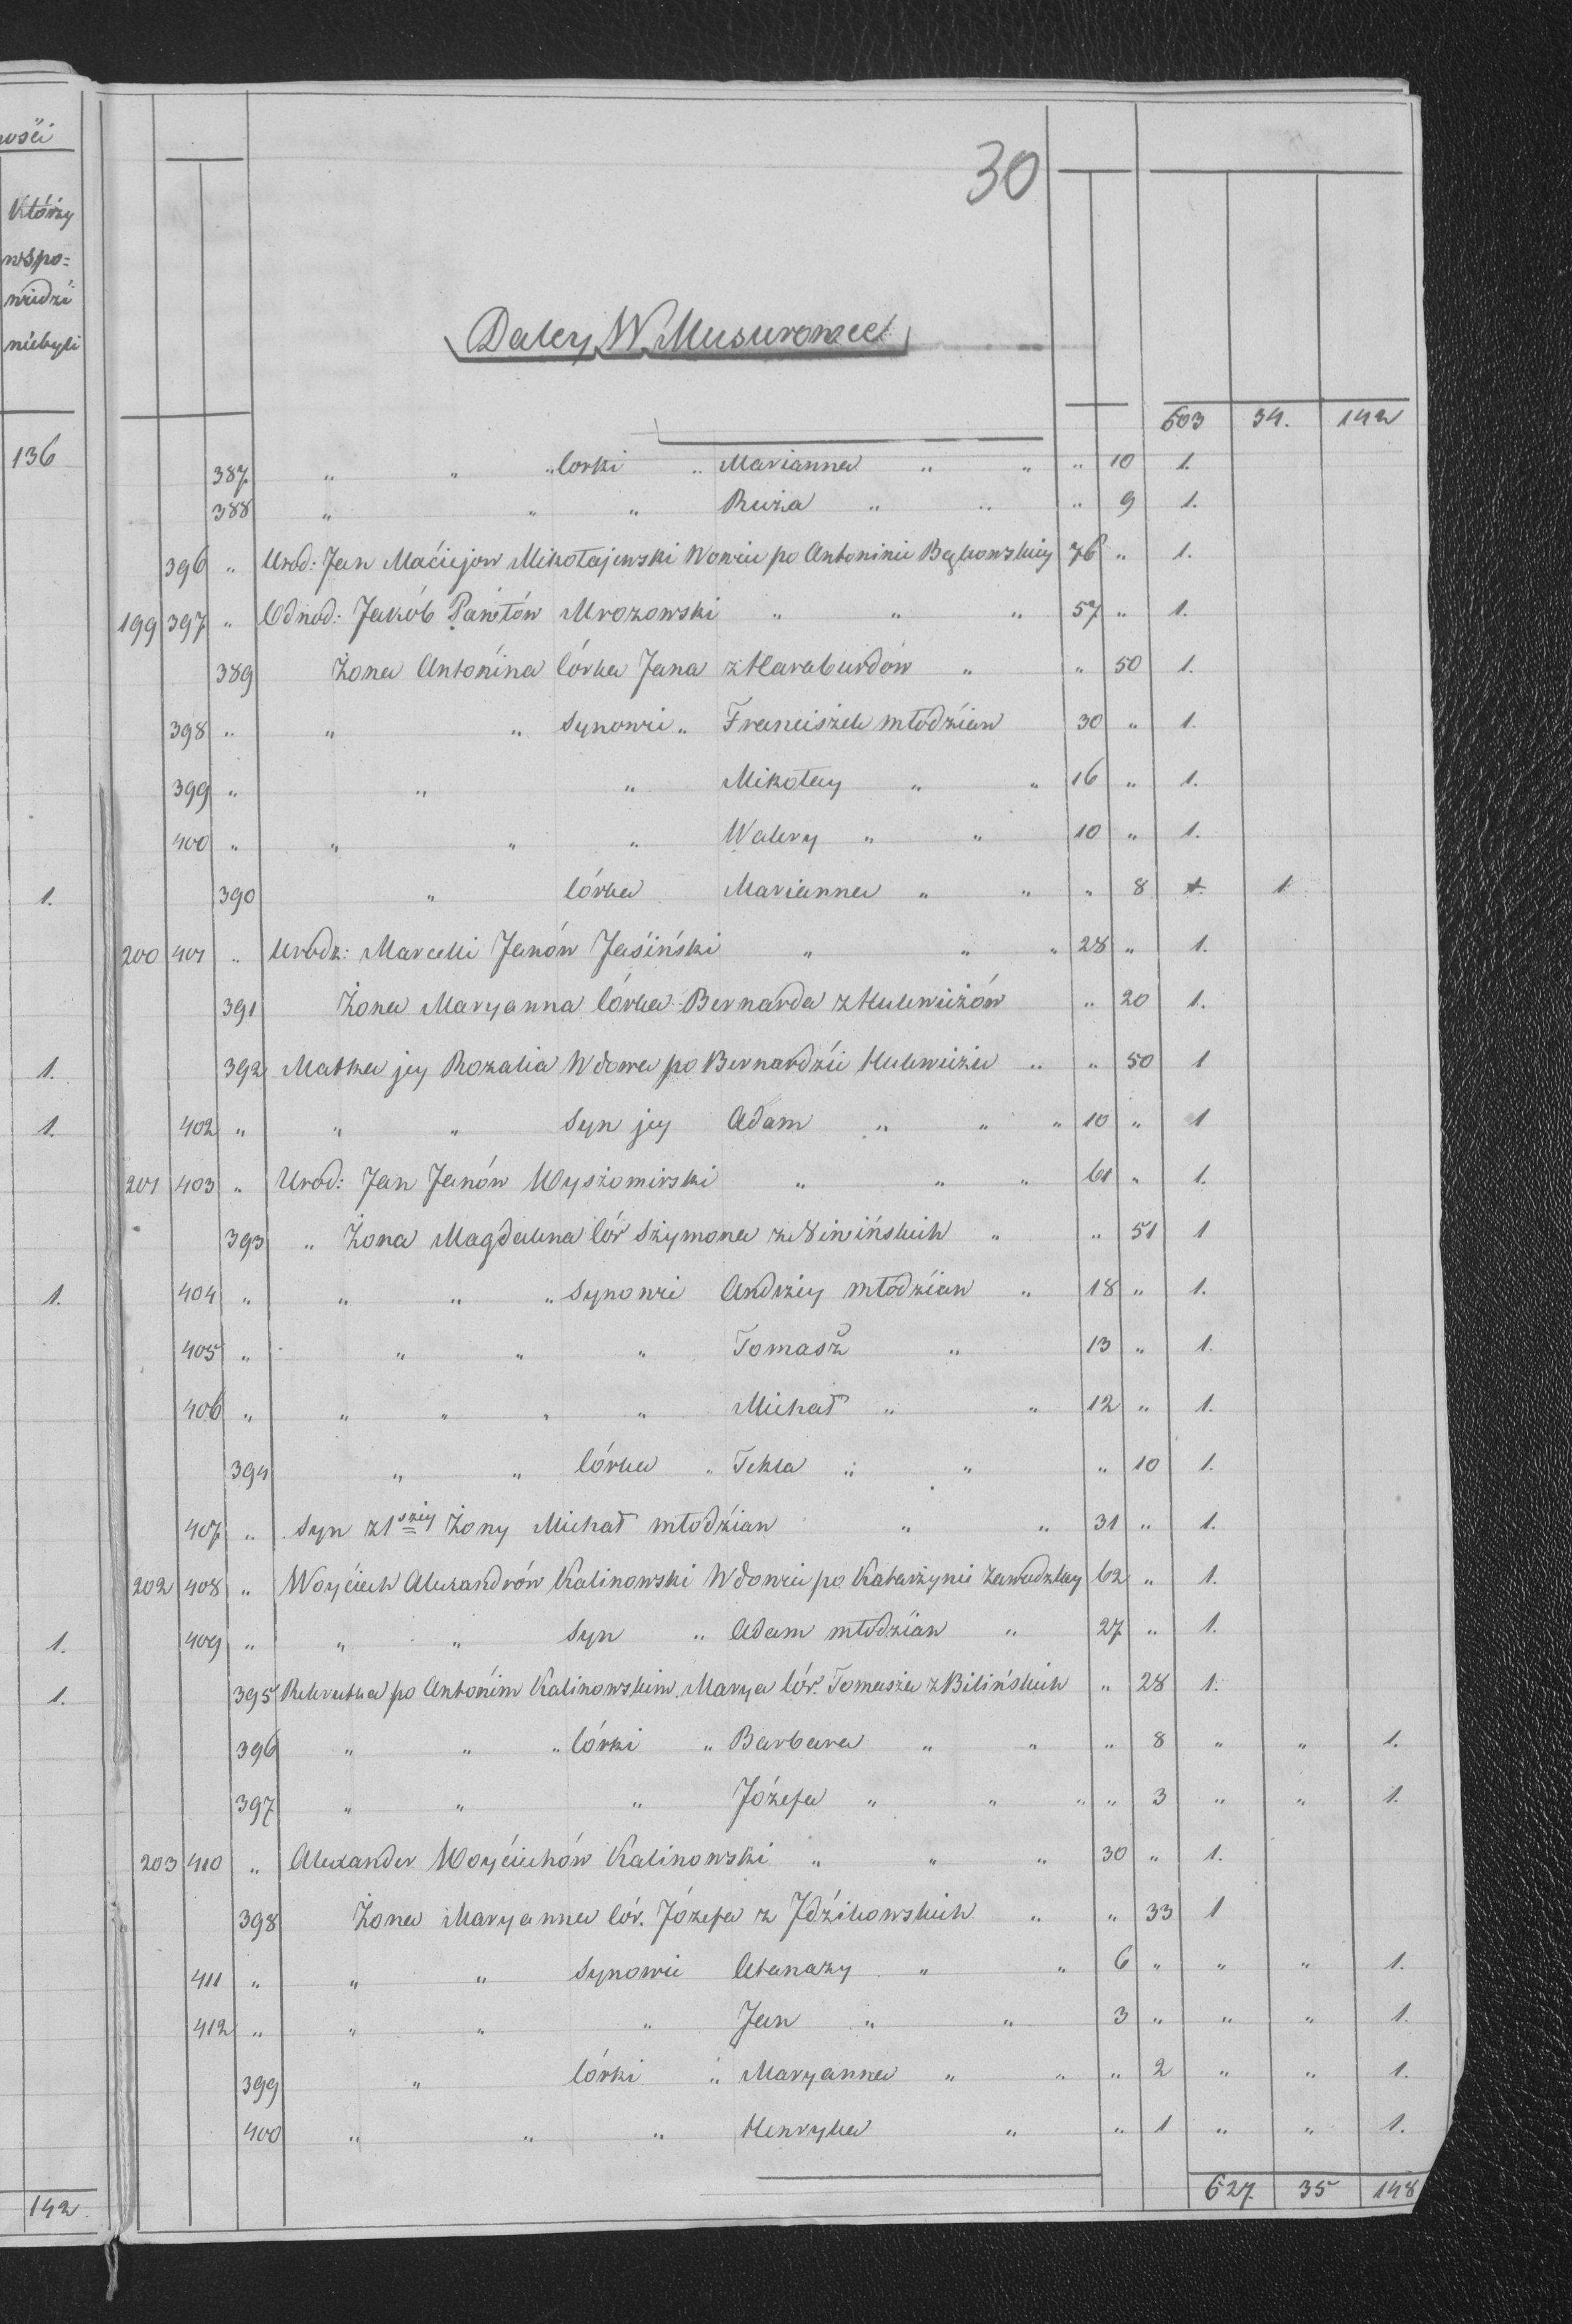 Którzy
wspo=
wiedzi
niebyli
136
1.
1.
1.
1.
1.
1.
142.
30
Daley W Musurowce
603 34. 142
387 " " " Corki " Marianna " " " 10 1.
388 " " " Ruża " " " 9 1.
396 " Urod: Jan Maciejow Mikołajewski Wdowiec po Antoninie 76 " 1.
199 397 " Odnod: Jakób Pawełów Mrozowski " " " 57 " 1.
389 Żona Antonina Córka Jana z Haraburdów " " 50 1.
398 " " " Synowie " Franciszek młodzian 30 " 1.
399 " " " Mikołay " " 16 " 1.
400 " " " " Walery " " 10 " 1.
390 " Córka Marianna " " " 8 1. 1
200 401 " Urodz: Marcelli Janów Jasiński " " " 28 " 1.
391 Żona Maryanna Córka Bernarda z Hulewiczów " 20 1.
392 Matka jey Rozalia Wdowa po Bernardzie Hulewiczu " " 50 1
402 " " " Syn jey Adam " " " 10 " 1
201 403 " Urod: Jan Janów Wyszomirski " " " 61 " 1.
393 " Żona Magdalena Cór Szymona " " 51 1
404 " " " " Synowie Andrzey młodzian " 18 " 1.
405 " " " " Tomasz " 13 " 1.
406 " " " " " Michał " " 12 " 1.
394 " " Córka " Tekla " " " 10 1.
407 " Syn z 1szey Żony Michał młodzian " " 31 " 1.
202 408 " Woyciech Alexandrów Kalinowski Wdowiec po Katarzynie Zawadzkiey 62 " 1.
409 " " " Syn " Adam młodzian " 27 " 1.
395 Rekrutka po Antonim Kalinowskim Marya Cór. Tomasza z Bilińskich " 28 1.
396 " " " Córki " Barbara " " " 8 " " 1.
397 " " " Józefa " " " " 3 " " 1.
203 410 " Alexander Woyciechów Kalinowski " " " 30 " 1.
398 Żona Maryanna Cór. Józefa z Jdźikowskich " " 33 1
411 " " " Synowie Atanazy " " 6 " " " 1.
412 " " " " Jan " " 3 " " " 1.
399 " Córki " Maryanna " " " 2 " " 1.
400 " " " Henryka " " 1 " " 1.
627 35 148